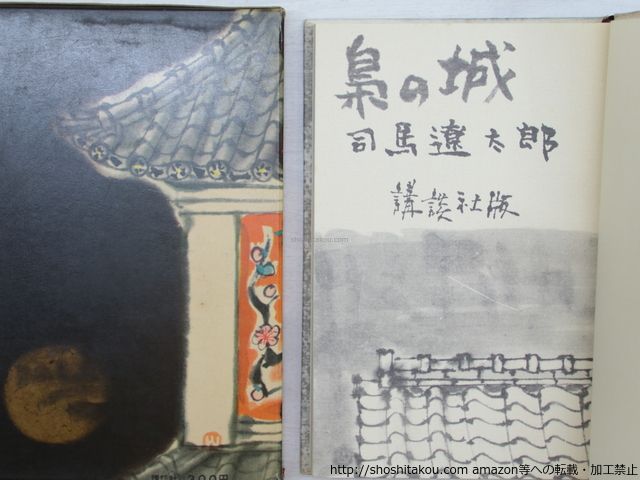 梟の城
司馬遼太郎
講談社版
shoshitakou.com
300円
http://shoshitakou.com amazon等への転載・加工禁止